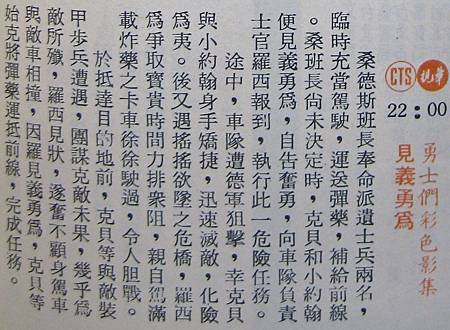 華視
CTS
22:00
勇士們彩色影集
見義勇爲
桑德斯班長奉命派遣士兵兩名，
臨時充當駕駛，運送彈藥，補給前線
。桑班長尚未決定時，克貝和小約翰
便見義勇爲，自告奮勇，向車隊負責
士官羅西報到，執行此一危險任務。
途中，車隊遭德軍狙擊，幸克貝
與小約翰身手矯捷，迅速滅敵，化險
爲夷。後又遇搖搖欲墜之危橋，羅西
爲爭取寶貴時間力排衆阻，親自駕滿
載炸藥之卡車徐徐駛過，令人胆戰。
於抵達目的地前，克貝等與敵裝
甲步兵遭遇，團謀克敵未果，幾乎爲
敵所殲，羅西見狀，遂奮不顧身駕車
與敵車相撞，因羅見義勇爲，克貝等
始克將彈藥運抵前線，完成任務。